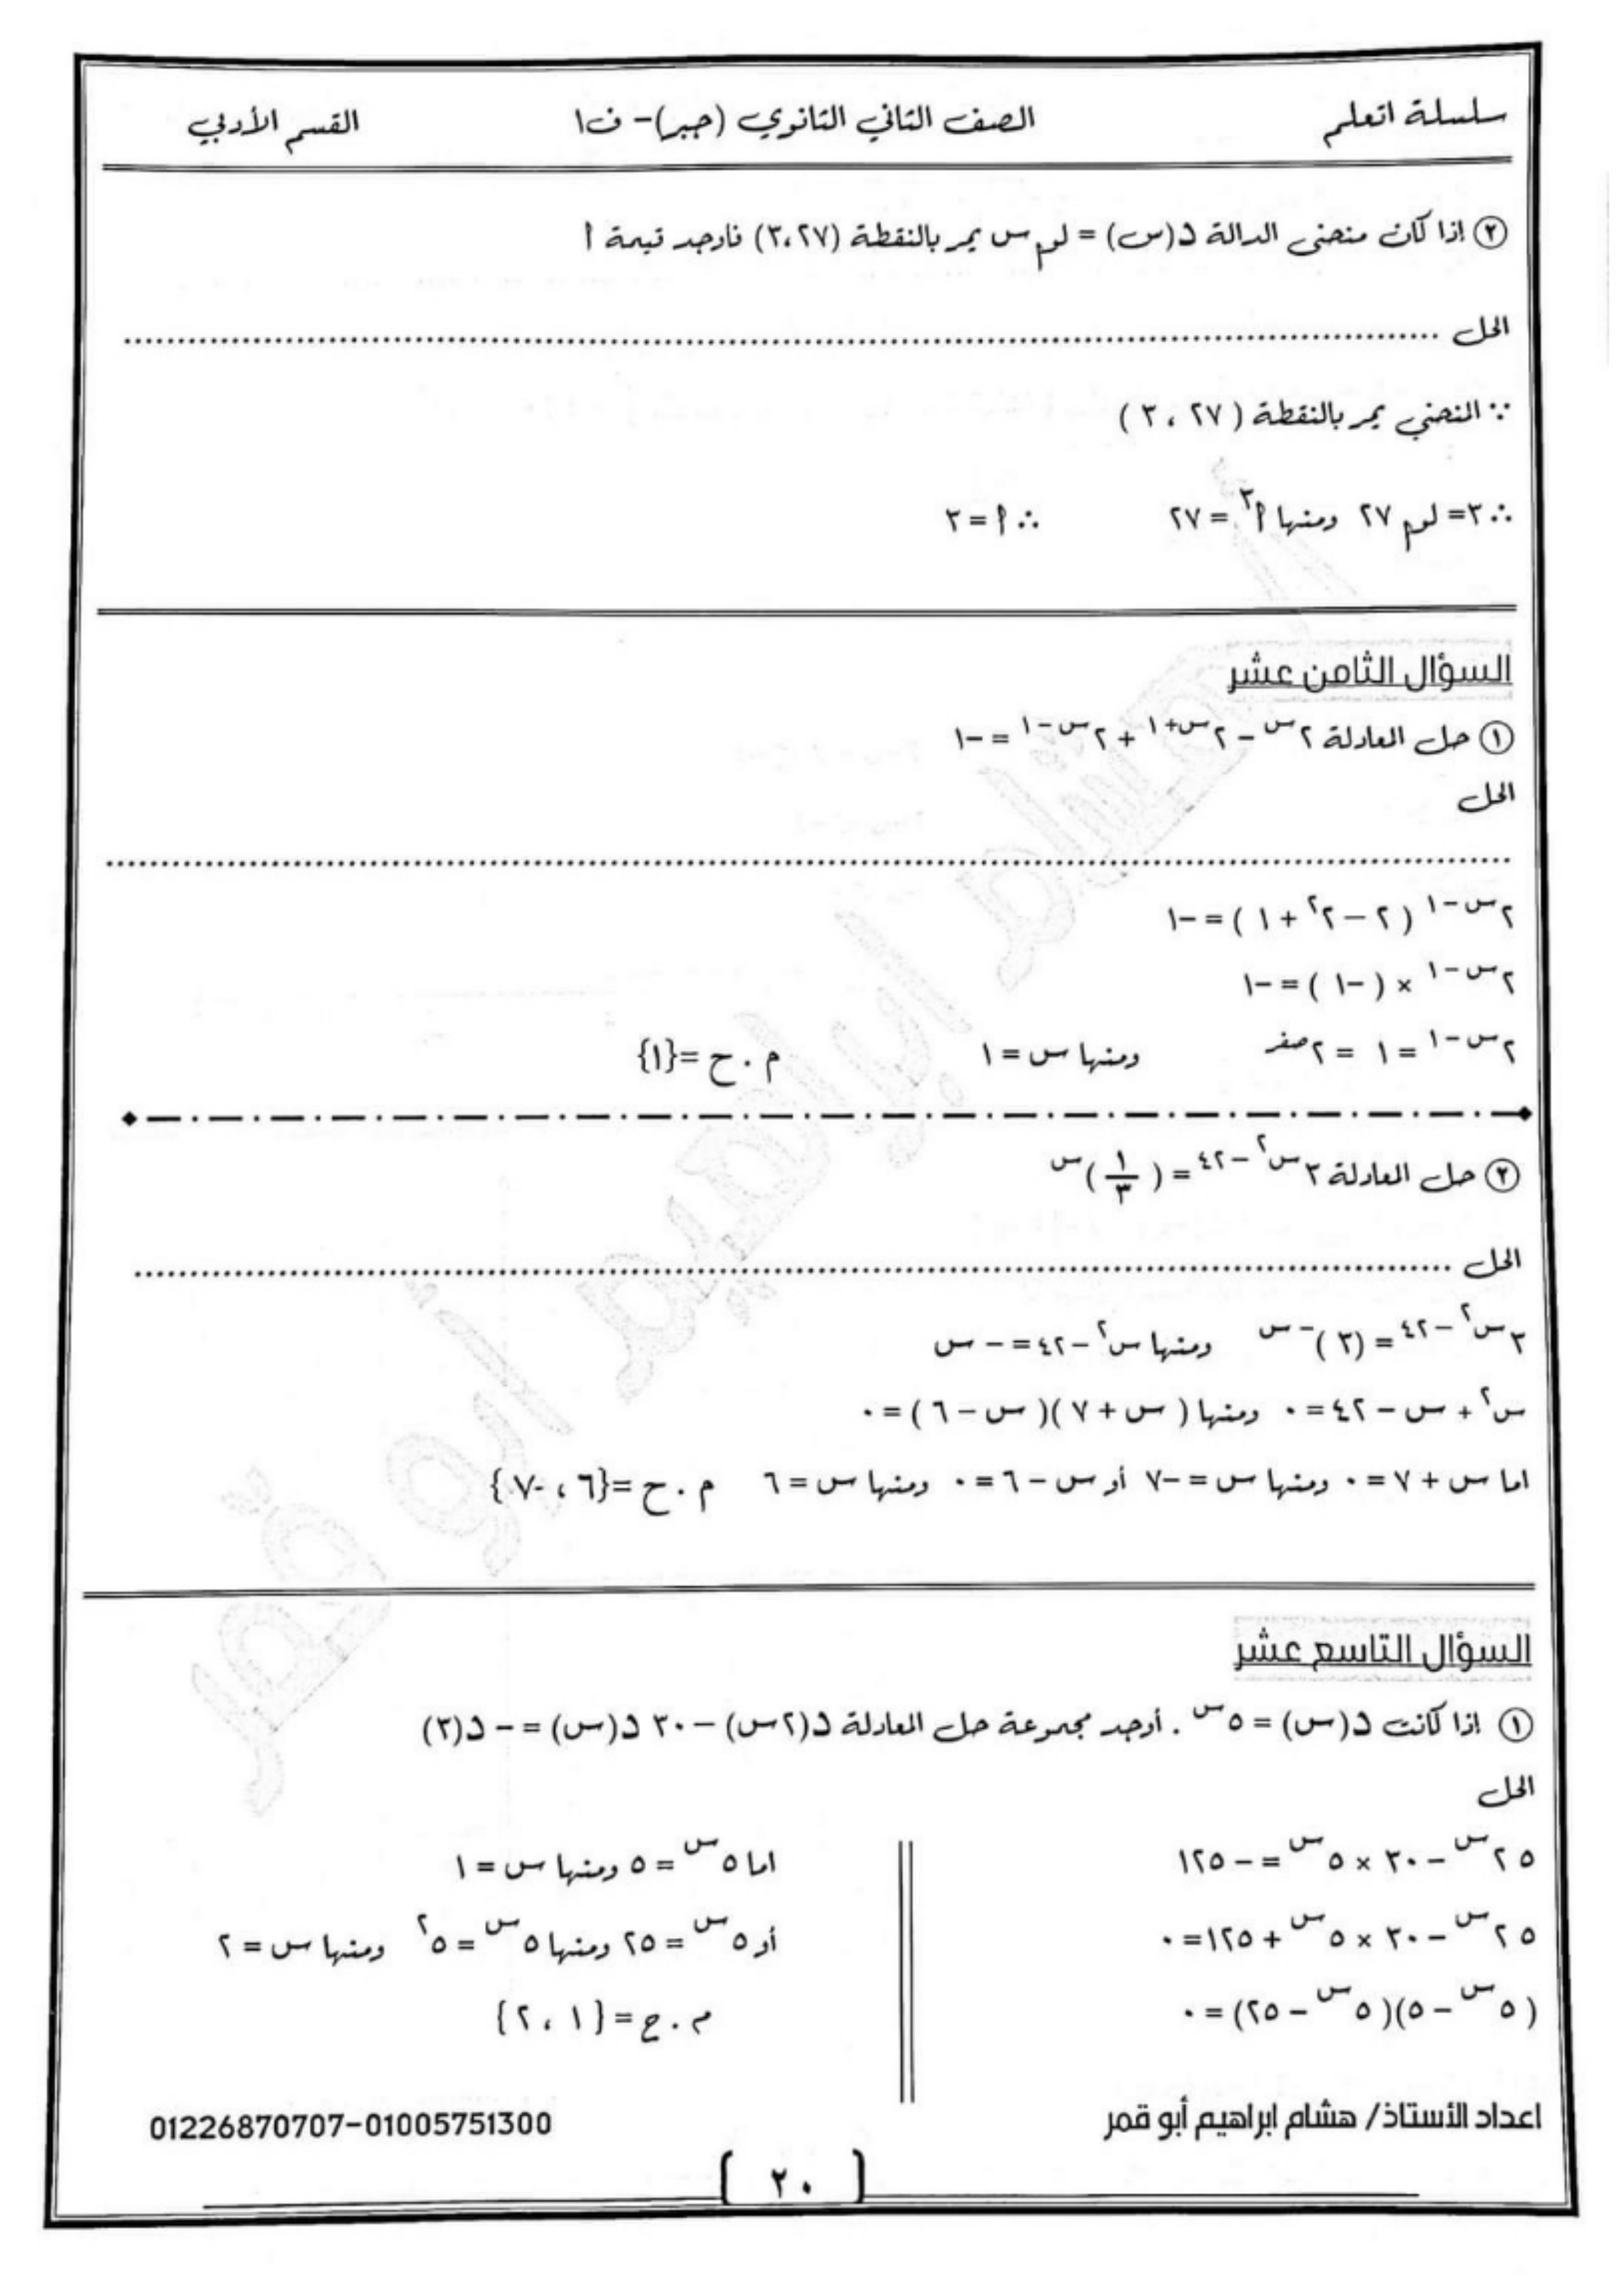 سلسلة اتعلم الصف الثاني الثانوي (جبر) – ف١ القسم الأدبي
② إذا كان منحنى الدالة د(س) = لو_أ س يمر بالنقطة (٢٧،٣) فأوجد قيمة أ
الحل ........................................
∵ المنحني يمر بالنقطة ( ٢٧ ، ٣ )
∴ ٣ = لو_أ ٢٧ ومنها أ^٣ = ٢٧ ∴ أ = ٣
السؤال الثامن عشر
① حل المعادلة ٢^س – ٢^(س+١) + ٢^(س–١) = –١
الحل
........................................
٢^(س–١) ( ٢ – ٢^٢ + ١ ) = –١
٢^(س–١) × ( –١ ) = –١
٢^(س–١) = ١ = ٢^صفر ومنها س = ١ م . ح = {١}
② حل المعادلة ٣^(س^٢ – ٤٢) = ( ١/٣ )^س
الحل ........................................
٣^(س^٢ – ٤٢) = ( ٣ )^(–س) ومنها س^٢ – ٤٢ = – س
س^٢ + س – ٤٢ = ٠ ومنها ( س + ٧ )( س – ٦ ) = ٠
اما س + ٧ = ٠ ومنها س = –٧ أو س – ٦ = ٠ ومنها س = ٦ م . ح = {٦ ، -٧ }
السؤال التاسع عشر
① إذا كانت د(س) = ٥^س . أوجد مجموعة حل المعادلة د(٢س) – ٣٠ د(س) = – د(٣)
الحل
٥^٢س – ٣٠ × ٥^س = – ١٢٥
٥^٢س – ٣٠ × ٥^س + ١٢٥ = ٠
( ٥^س – ٥)( ٥^س – ٢٥) = ٠
اما ٥^س = ٥ ومنها س = ١
أو ٥^س = ٢٥ ومنها ٥^س = ٥^٢ ومنها س = ٢
م . ح = { ١ ، ٢ }
اعداد الأستاذ/ هشام ابراهيم أبو قمر 01226870707-01005751300
[ ٢٠ ]
هشام ابراهيم أبو قمر